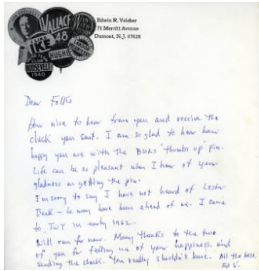 WALLACE
'48
ROOSEVELT
1940
Edwin R. Volcker
71 Merritt Avenue
Dumont, N.J. 07628
Dear Folks
How nice to hear from you and receive the
check you sent. I am so glad to hear how
happy you are with the "thumbs up" pin.
Life can be so pleasant when I hear of your
gladness on getting the pin.
I'm sorry to say I have not heard of Lester
- he may have been ahead of me. I came
to in early 1962.
Will run for now. Many thanks to the two
of you for telling me of your happiness and
sending the check. You really shouldn't have. All the best
Ed V.